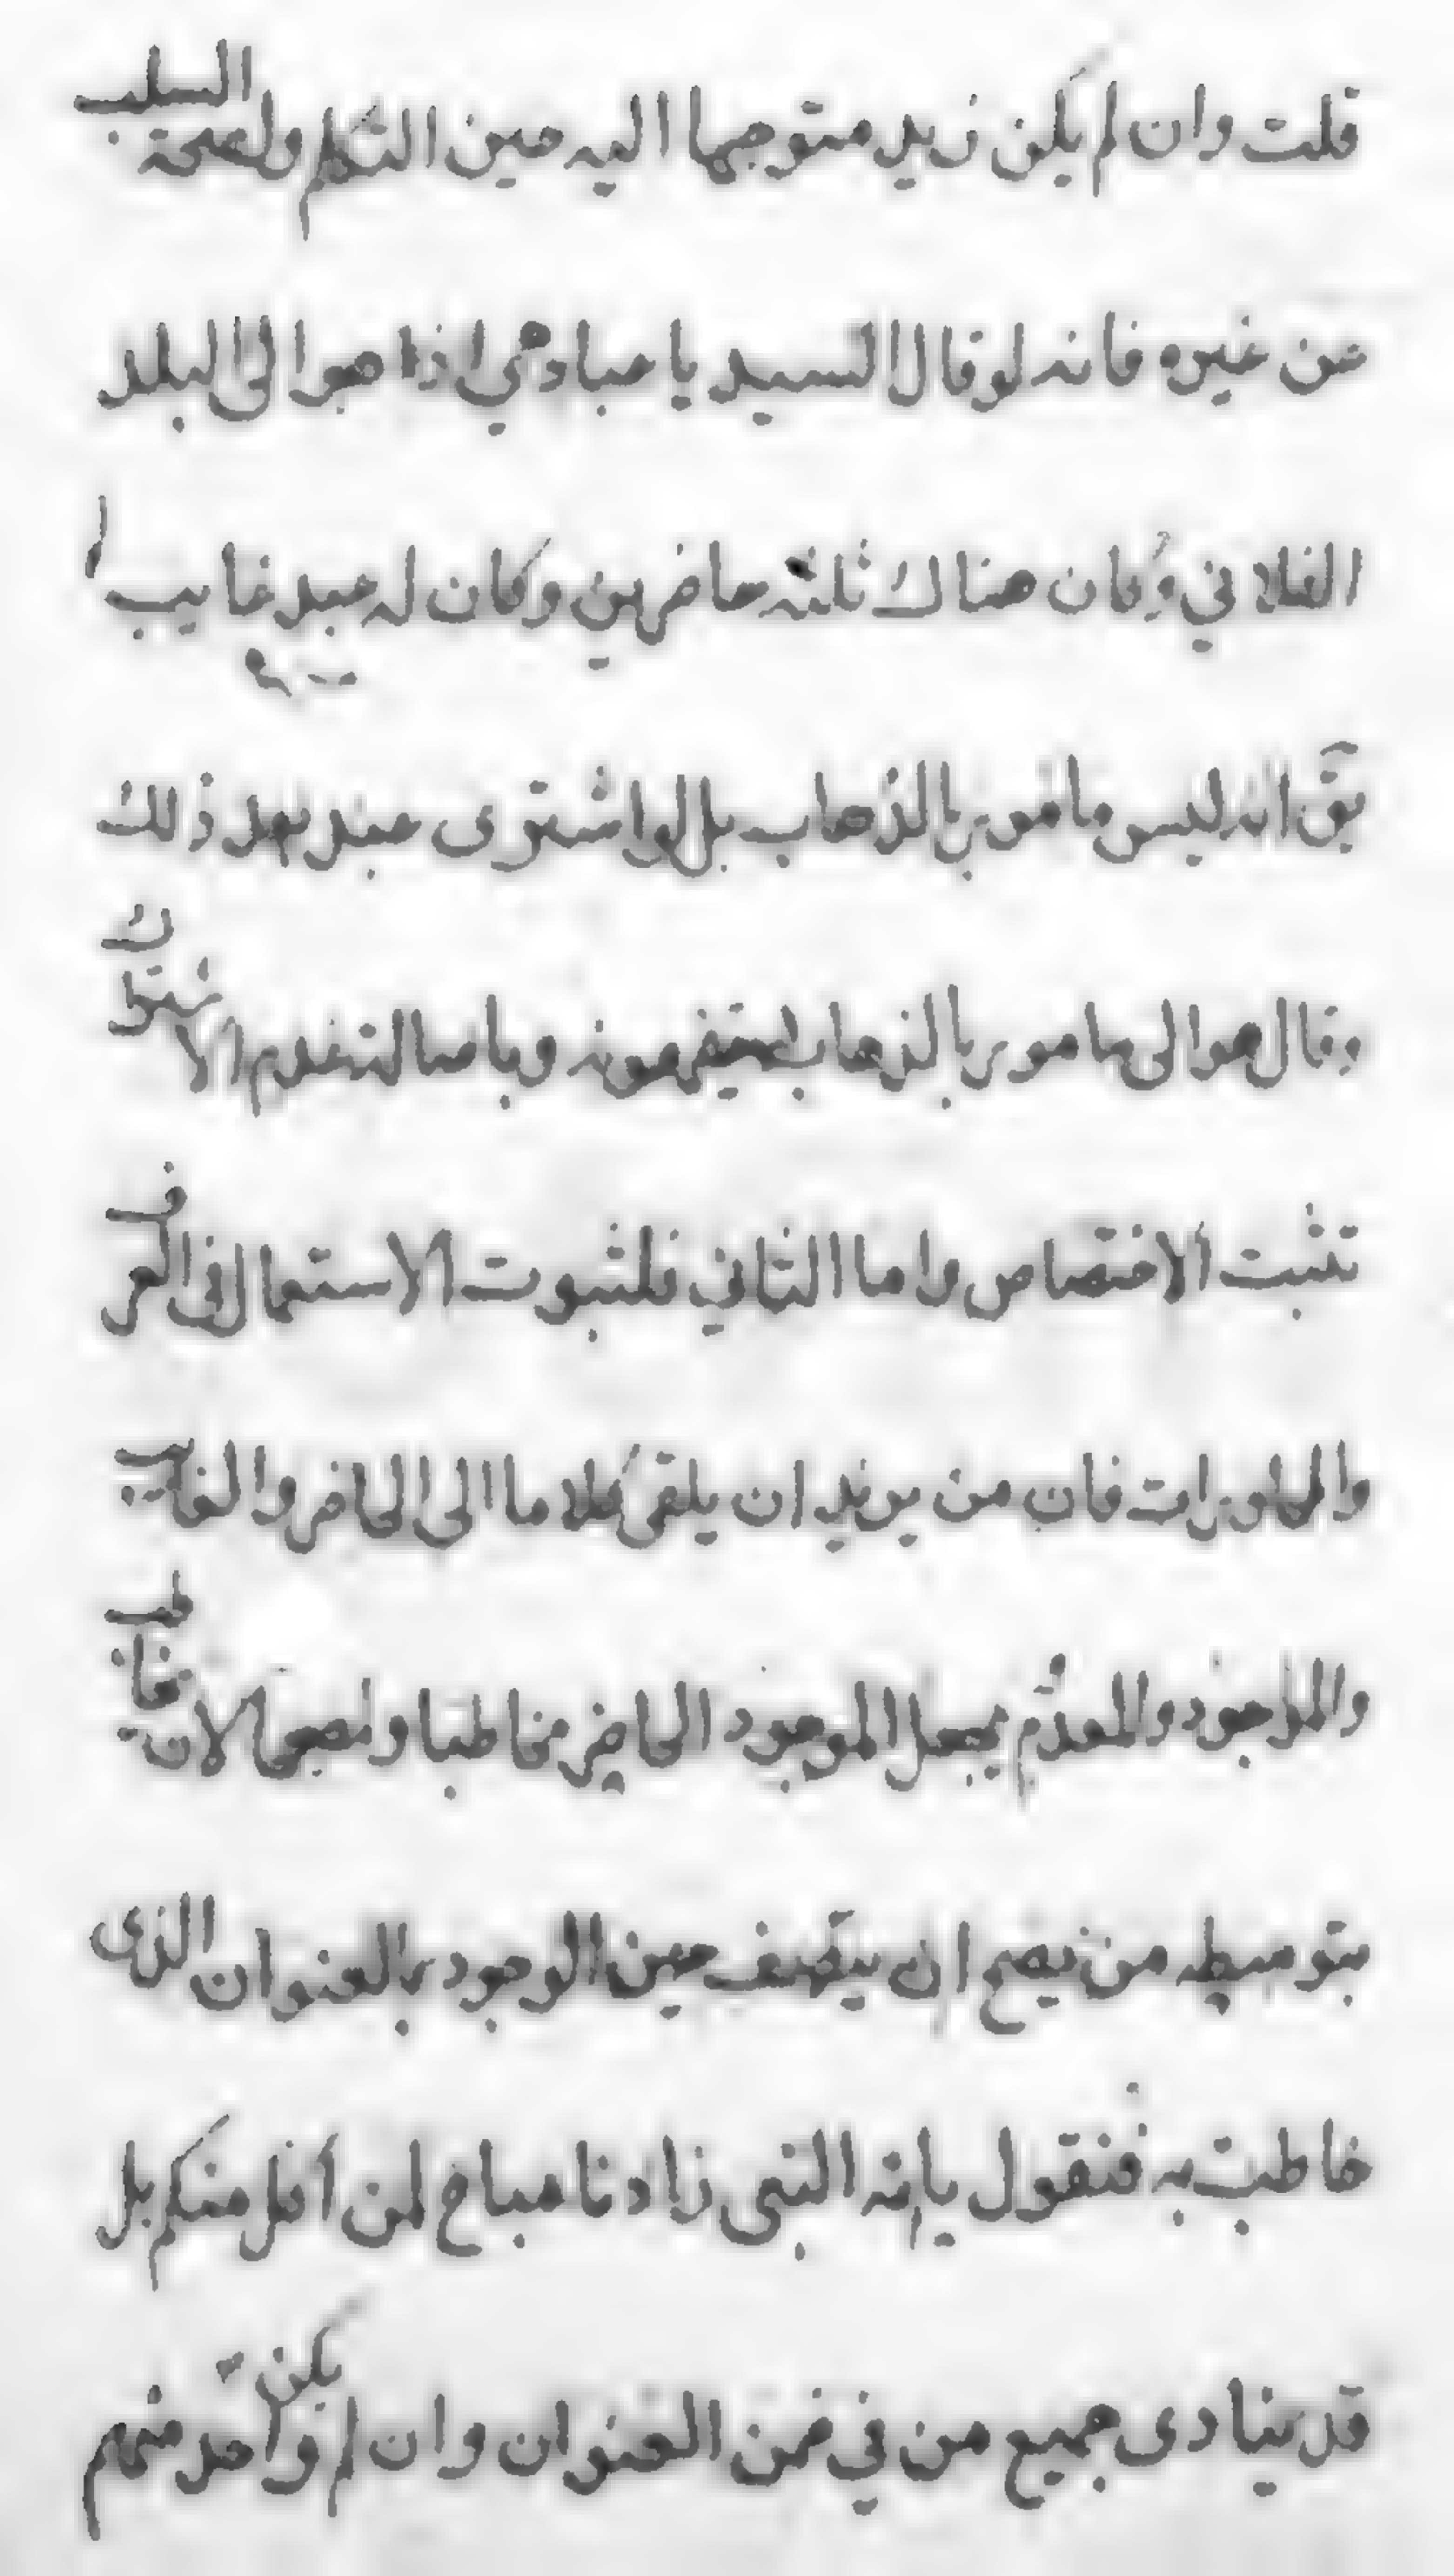 قلت وان لم يكن زيد متوجها اليه حين التكلم ولصحة السلب
عن غيره فانه لو قال السيد يا عبادي اذاهبوا الى البلد
الفلاني وكان هناك ثلثه حاضرين وكان له عبد غايب لا
يقّ انه ليس مامور بالذهاب بل لو اشترى عبد بعد ذلك
وقال هوالى مامور بالذهاب يستفهمونه وباصالة عدم الاشتراك
تثبت الاختصاص واما الثاني فلثبوت الاستعمال فى العرف
والمحاورات فان من يريد ان يلقى كلاما الى الحاضر والغايب
والموجود والمعدوم يجعل الموجود الحاضر مخاطبا ولصحة الان تخاطب
بتوسطه من يصح ان يتصف حين الوجود بالعنوان الذى
خاطبت به فنقول يا امة النبى زادنا مباح لمن اكل منكم بل
قد ينادى جميع من في ضمن العنوان وان لم يكن واحد منهم